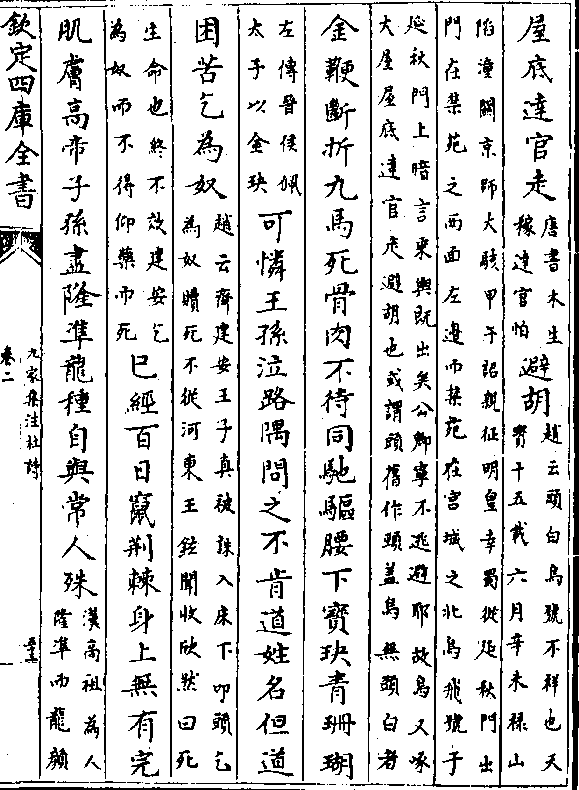 屋底達官走
唐書木生
稼達官怕
避胡
趙云頭白烏號不祥也天
寶十五載六月辛未祿山
陷潼關京師大駭甲午詔親征明皇幸蜀從延秋門出
門在禁苑之西面左邊而禁苑在宮城之北烏飛號于
延秋門上暗言乘輿既出矣公卿寧不逃避耶故烏又啄
大屋屋底達官走避胡也或謂頭舊作頸蓋烏無頭白者
金鞭斷折九馬死骨肉不待同馳驅腰下寶玦青珊瑚
左傳晉侯佩
太子以金玦
可憐王孫泣路隅問之不肯道姓名但道
困苦乞為奴
趙云齊建安王子真被誅入床下叩頭乞
為奴贖死不從河東王鉉聞收欣然曰死
生命也終不效建安乞
為奴而不得仰藥而死
已經百日竄荊棘身上無有完
肌膚高帝子孫盡隆準龍種自與常人殊
漢高祖為人
隆準而龍顏
欽定四庫全書
九家集注杜詩
卷二